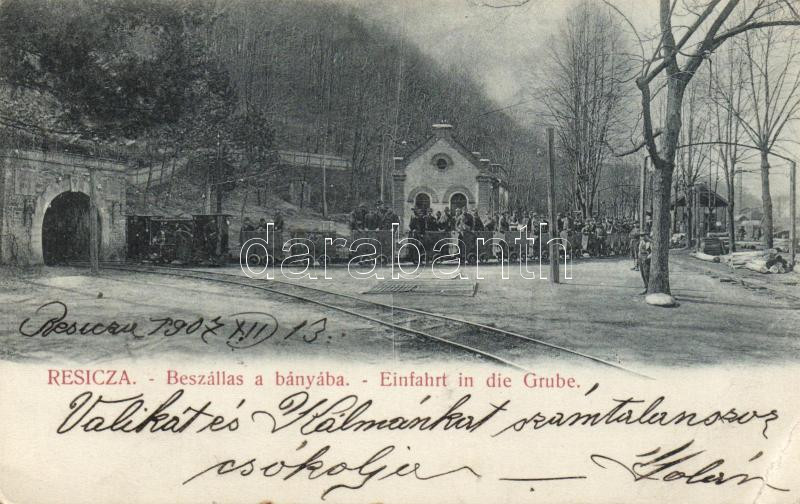 darabanth
Resicza 1907 XII 13.
RESICZA. - Beszállas a bányába. - Einfahrt in die Grube.
Valikát és Kálmánkat számtalanszor
csókolja — Zolán